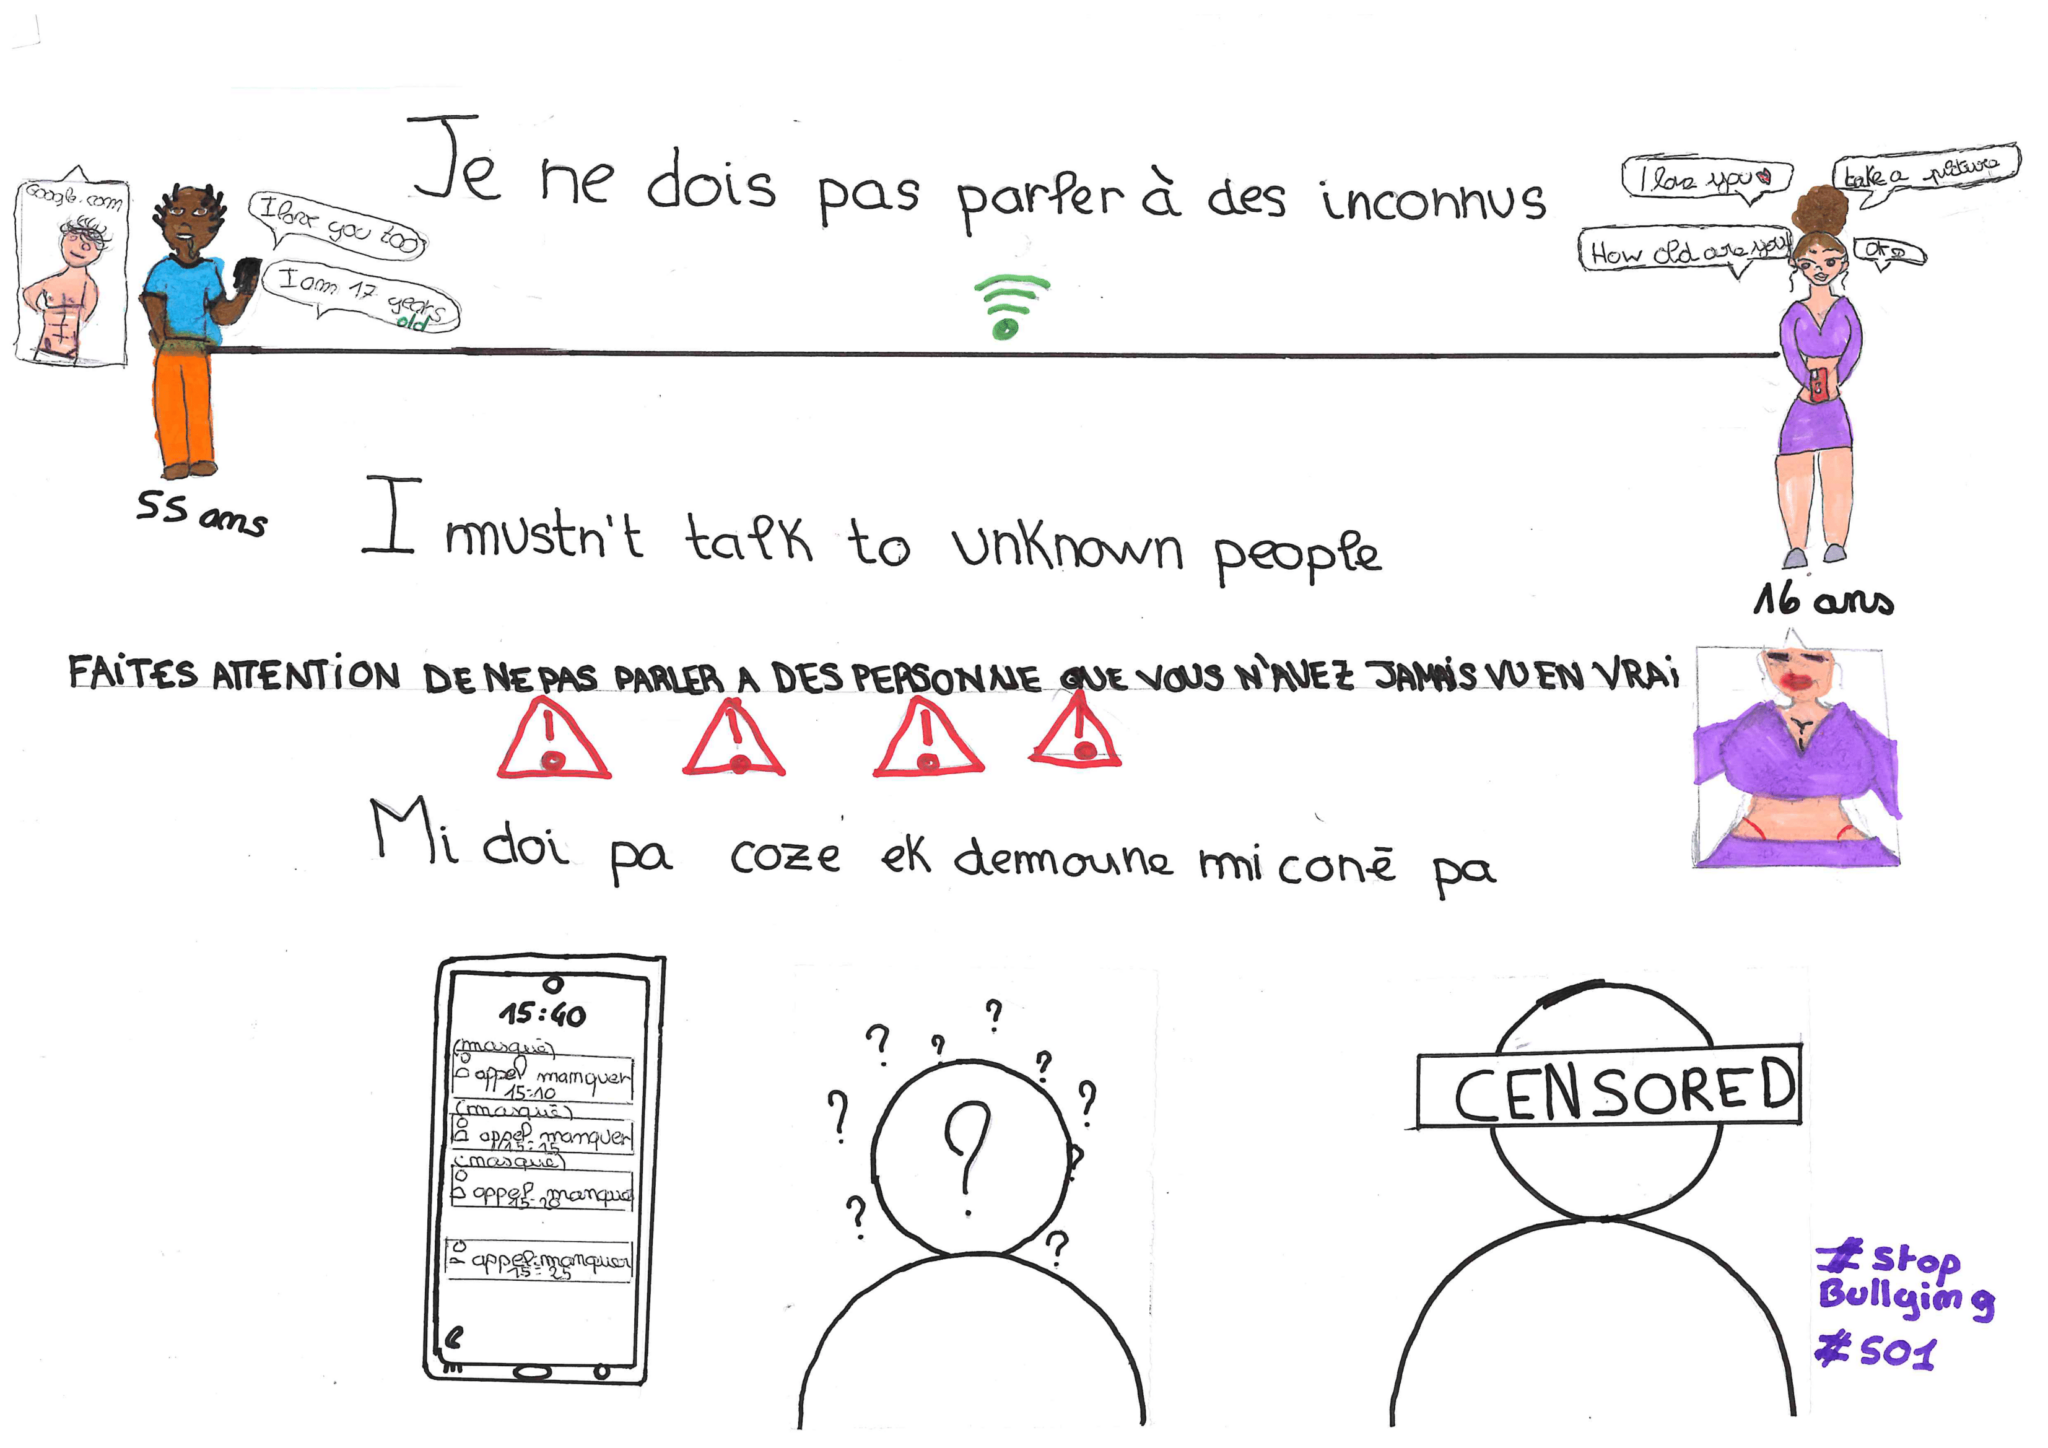 Je ne dois pas parler à des inconnus
Google.com
I love you too
I am 17 years
old
I love you
take a picture
How old are you
55 ans
I mustn't talk to unknown people
16 ans
FAITES ATTENTION DE NE PAS PARLER A DES PERSONNE QUE VOUS N'AVEZ JAMAIS VU EN VRAI
Mi doi pa cozé ek demoune mi conē pa
15:40
(masqué)
appel manquer
15:10
(masqué)
appel manquer
15:15
(masqué)
appel manqué
15:20
appel manquer
15:25
?
CENSORED
# Stop
Bullying
# SO1